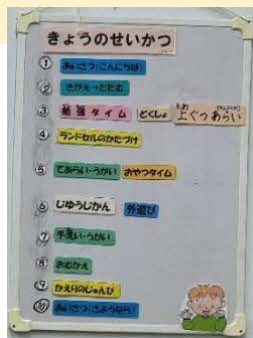 きょうのせいかつ
① あいさつ(こんにちは)
② きがえ→たたむ
③ 勉強タイム どくしょ 上ぐつあらい
④ ランドセルのかたづけ
⑤ てあらい・うがい おやつタイム
⑥ じゆうじかん 外遊び
⑦ 手洗い・うがい
⑧ おむかえ
⑨ かえりのじゅんび
⑩ あいさつ(さようなら)